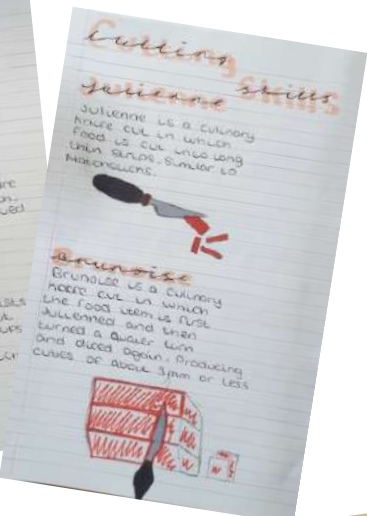 Cutting
Skills
Julienne
Julienne is a culinary
knife cut in which
food is cut into long
thin strips. Similar to
Matchsticks.
Brunoise
Brunoise is a culinary
knife cut in which
the food item is first
Julienned and then
turned a quater turn
and diced again. Producing
cubes of about 3mm or less